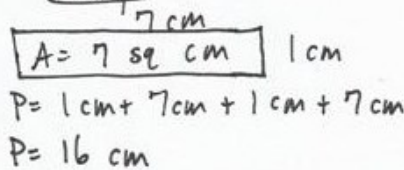 7 cm
A= 7 sq cm 1 cm
P= 1 cm + 7cm + 1 cm + 7 cm
P= 16 cm